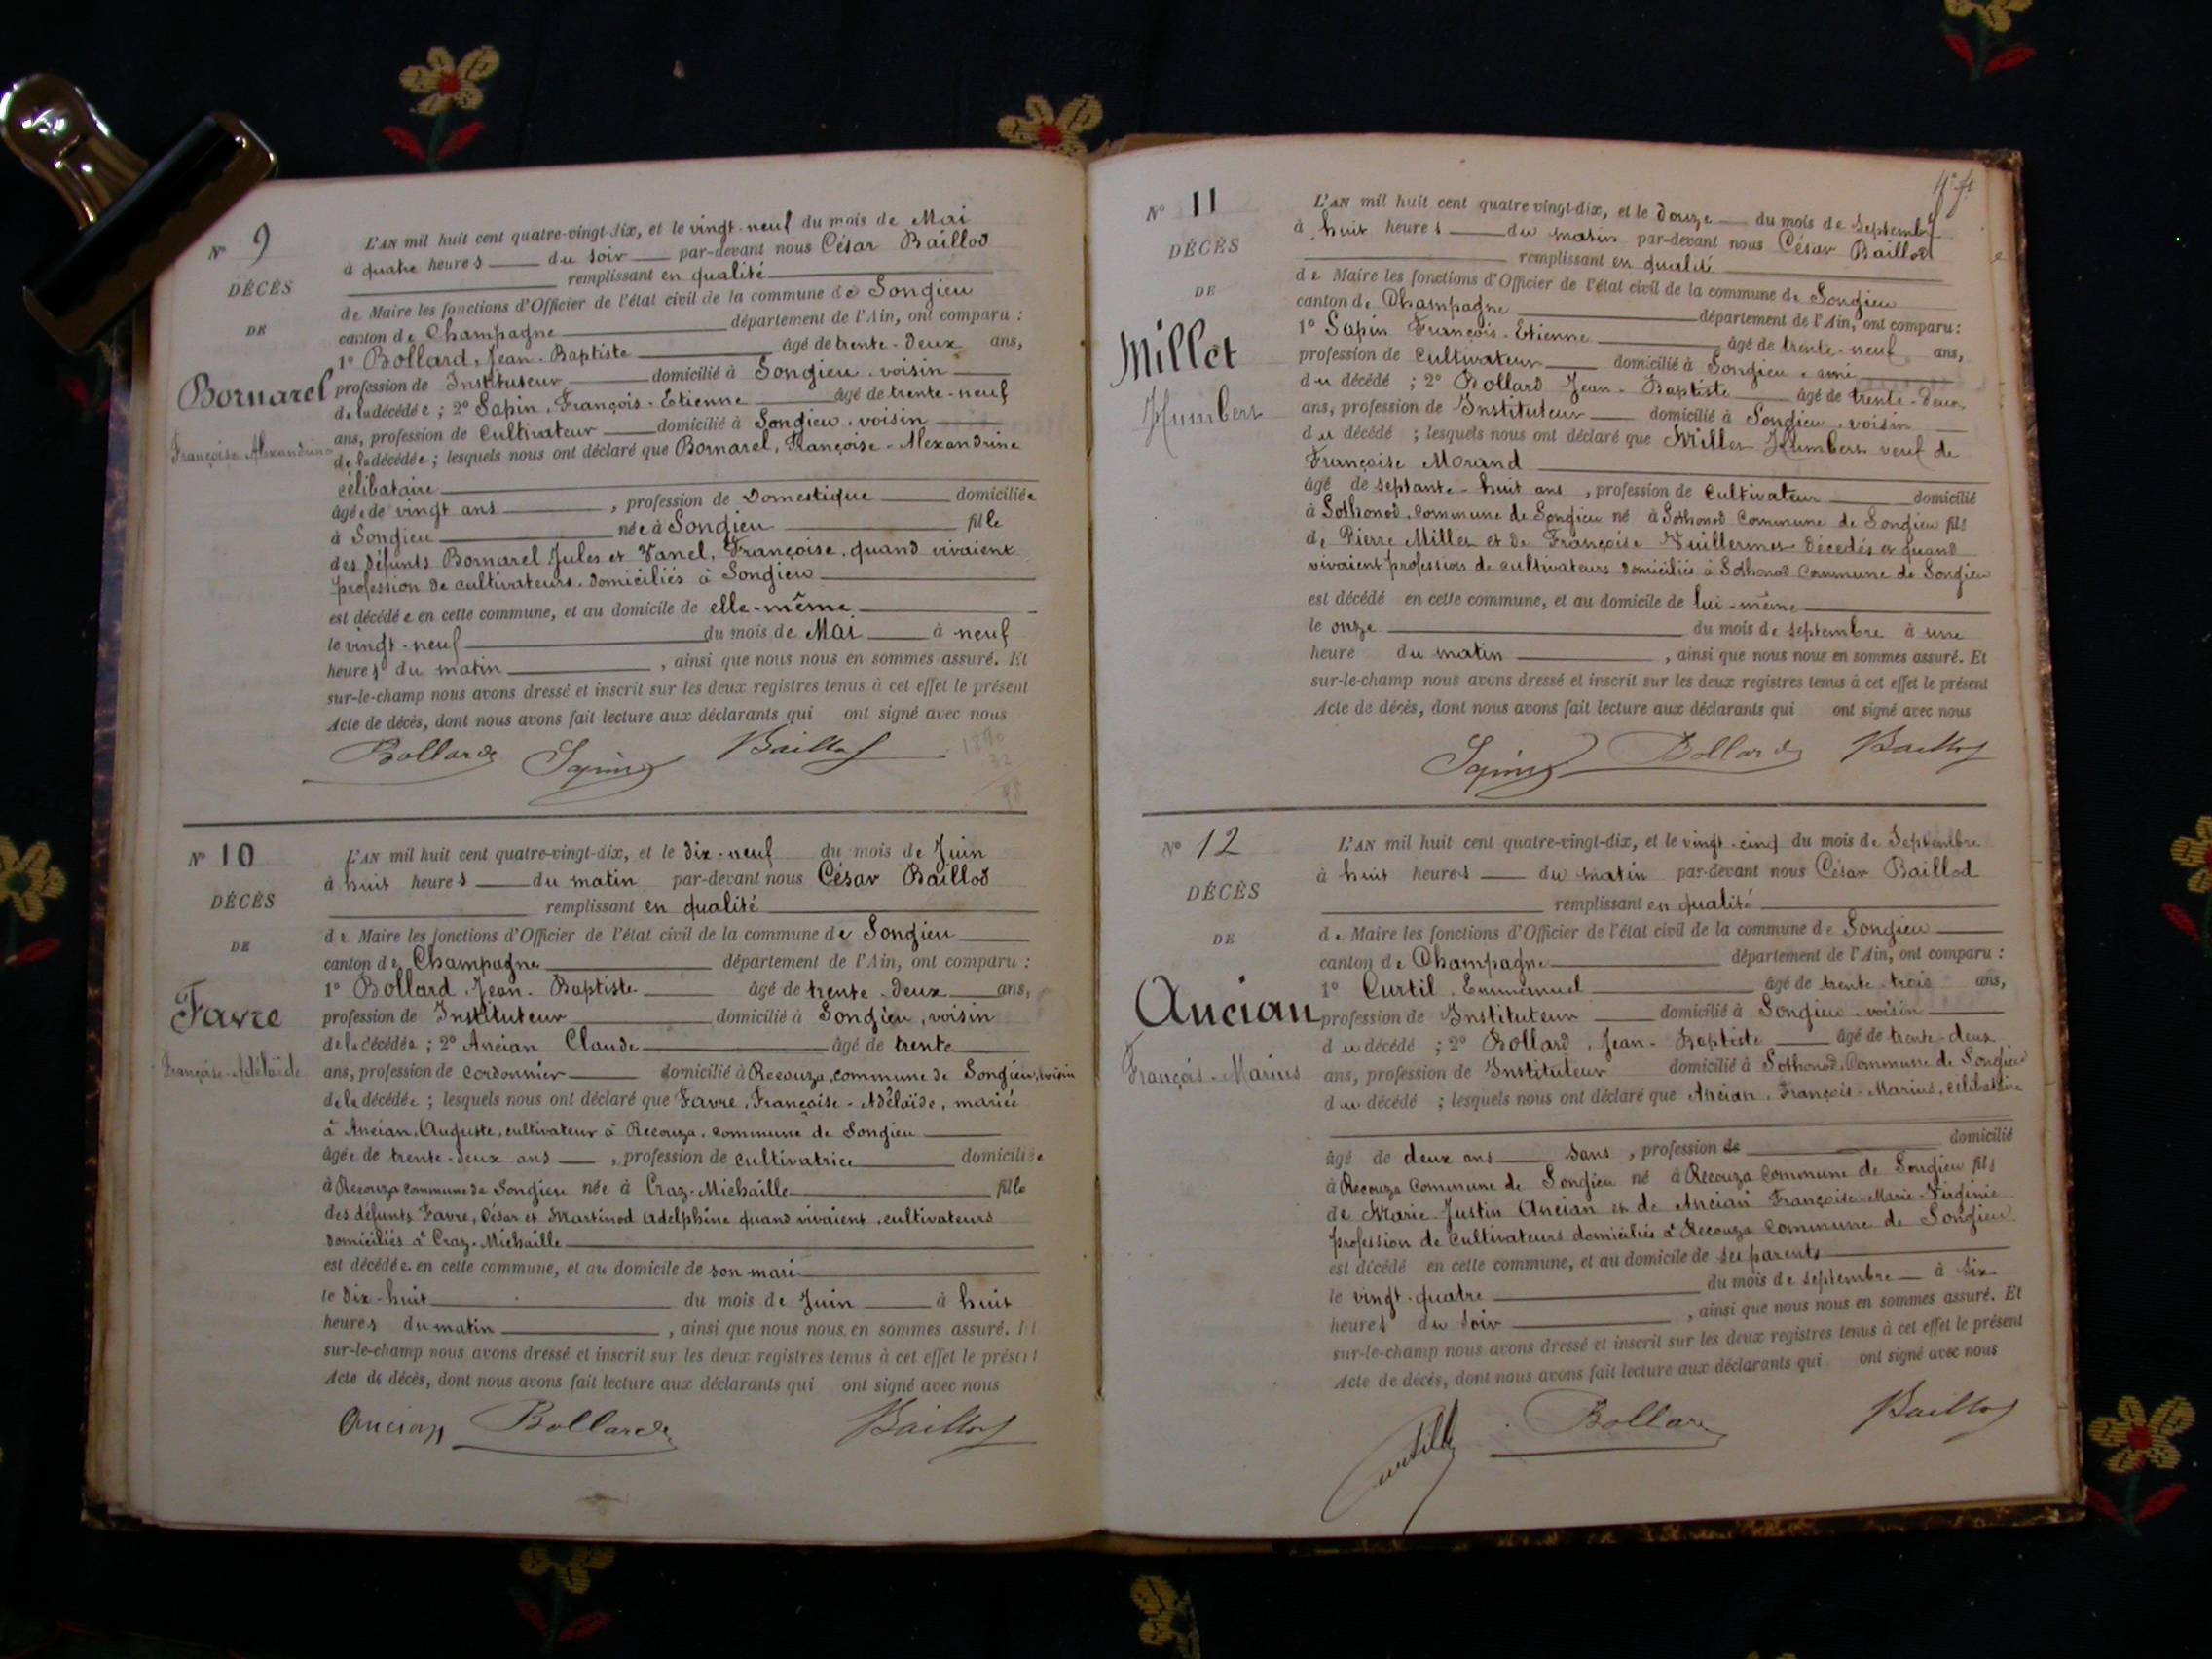 N° 9
DÉCÈS
DE
Bornarel
Françoise-Alexandrine
L'AN mil huit cent quatre-vingt-dix, et le vingt-neuf du mois de Mai
à quatre heures du soir par-devant nous César Baillod
remplissant en qualité
de Maire les fonctions d'Officier de l'état civil de la commune de Songieu
canton de Champagne département de l'Ain, ont comparu :
1° Bollard, Jean-Baptiste âgé de trente-deux ans,
profession de Instituteur domicilié à Songieu, voisin
de la décédée ; 2° Sapin, François-Etienne âgé de trente-neuf
ans, profession de Cultivateur domicilié à Songieu, voisin
de la décédée ; lesquels nous ont déclaré que Bornarel, Françoise-Alexandrine
célibataire
âgée de vingt ans , profession de Domestique domiciliée
à Songieu née à Songieu fille
des défunts Bornarel Jules et Vanel, Françoise, quand vivaient
profession de cultivateurs, domiciliés à Songieu
est décédée en cette commune, et au domicile de elle-même
le vingt-neuf du mois de Mai à neuf
heures du matin , ainsi que nous nous en sommes assuré. Et
sur-le-champ nous avons dressé et inscrit sur les deux registres tenus à cet effet le présent
Acte de décès, dont nous avons fait lecture aux déclarants qui ont signé avec nous
Bollard Sapin Baillod
1890
32
N° 10
DÉCÈS
DE
Favre
Françoise-Adélaïde
L'AN mil huit cent quatre-vingt-dix, et le dix-neuf du mois de Juin
à huit heures du matin par-devant nous César Baillod
remplissant en qualité
de Maire les fonctions d'Officier de l'état civil de la commune de Songieu
canton de Champagne département de l'Ain, ont comparu :
1° Bollard, Jean-Baptiste âgé de trente-deux ans,
profession de Instituteur domicilié à Songieu, voisin
de la décédée ; 2° Ancian Claude âgé de trente
ans, profession de cordonnier domicilié à Recouza, commune de Songieu, voisin
de la décédée ; lesquels nous ont déclaré que Favre, Françoise-Adélaïde, mariée
à Ancian, Auguste, cultivateur à Recouza, commune de Songieu
âgée de trente-deux ans , profession de cultivatrice domiciliée
à Recouza commune de Songieu née à Craz-Michaille fille
des défunts Favre, César et Martinod Adelphine quand vivaient, cultivateurs
domiciliés à Craz-Michaille
est décédée en cette commune, et au domicile de son mari
le dix-huit du mois de Juin à huit
heures du matin , ainsi que nous nous en sommes assuré. Et
sur-le-champ nous avons dressé et inscrit sur les deux registres tenus à cet effet le présent
Acte de décès, dont nous avons fait lecture aux déclarants qui ont signé avec nous
Ancian Bollard Baillod
N° 11
DÉCÈS
DE
Millet
Humbert
L'AN mil huit cent quatre vingt-dix, et le douze du mois de Septembre
à huit heures du matin par-devant nous César Baillod
remplissant en qualité
de Maire les fonctions d'Officier de l'état civil de la commune de Songieu
canton de Champagne département de l'Ain, ont comparu :
1° Sapin François-Etienne âgé de trente-neuf ans,
profession de Cultivateur domicilié à Songieu, ami
du décédé ; 2° Bollard Jean-Baptiste âgé de trente-deux
ans, profession de Instituteur domicilié à Songieu, voisin
du décédé ; lesquels nous ont déclaré que Millet Humbert veuf de
Françoise Morand
âgé de septante-huit ans , profession de Cultivateur domicilié
à Sothonod, commune de Songieu né à Sothonod Commune de Songieu fils
de Pierre Millet et de Françoise Vuillermet décédés et quand
vivaient profession de cultivateurs domiciliés à Sothonod Commune de Songieu
est décédé en cette commune, et au domicile de lui-même
le onze du mois de septembre à une
heure du matin , ainsi que nous nous en sommes assuré. Et
sur-le-champ nous avons dressé et inscrit sur les deux registres tenus à cet effet le présent
Acte de décès, dont nous avons fait lecture aux déclarants qui ont signé avec nous
Sapin Bollard Baillod
N° 12
DÉCÈS
DE
Ancian
François-Marius
L'AN mil huit cent quatre-vingt-dix, et le vingt-cinq du mois de Septembre
à huit heures du matin par-devant nous César Baillod
remplissant en qualité
de Maire les fonctions d'Officier de l'état civil de la commune de Songieu
canton de Champagne département de l'Ain, ont comparu :
1° Curtil, Emmanuel âgé de trente-trois ans,
profession de Instituteur domicilié à Songieu, voisin
du décédé ; 2° Bollard, Jean-Baptiste âgé de trente-deux
ans, profession de Instituteur domicilié à Sothonod, Commune de Songieu
du décédé ; lesquels nous ont déclaré que Ancian, François-Marius, célibataire
âgé de deux ans sans , profession de domicilié
à Recouza Commune de Songieu né à Recouza Commune de Songieu fils
de Marie-Justin Ancian et de Ancian Françoise-Marie-Virginie
profession de Cultivateurs domiciliés à Recouza Commune de Songieu
est décédé en cette commune, et au domicile de ses parents
le vingt-quatre du mois de septembre à six
heures du soir , ainsi que nous nous en sommes assuré. Et
sur-le-champ nous avons dressé et inscrit sur les deux registres tenus à cet effet le présent
Acte de décès, dont nous avons fait lecture aux déclarants qui ont signé avec nous
Curtil Bollard Baillod